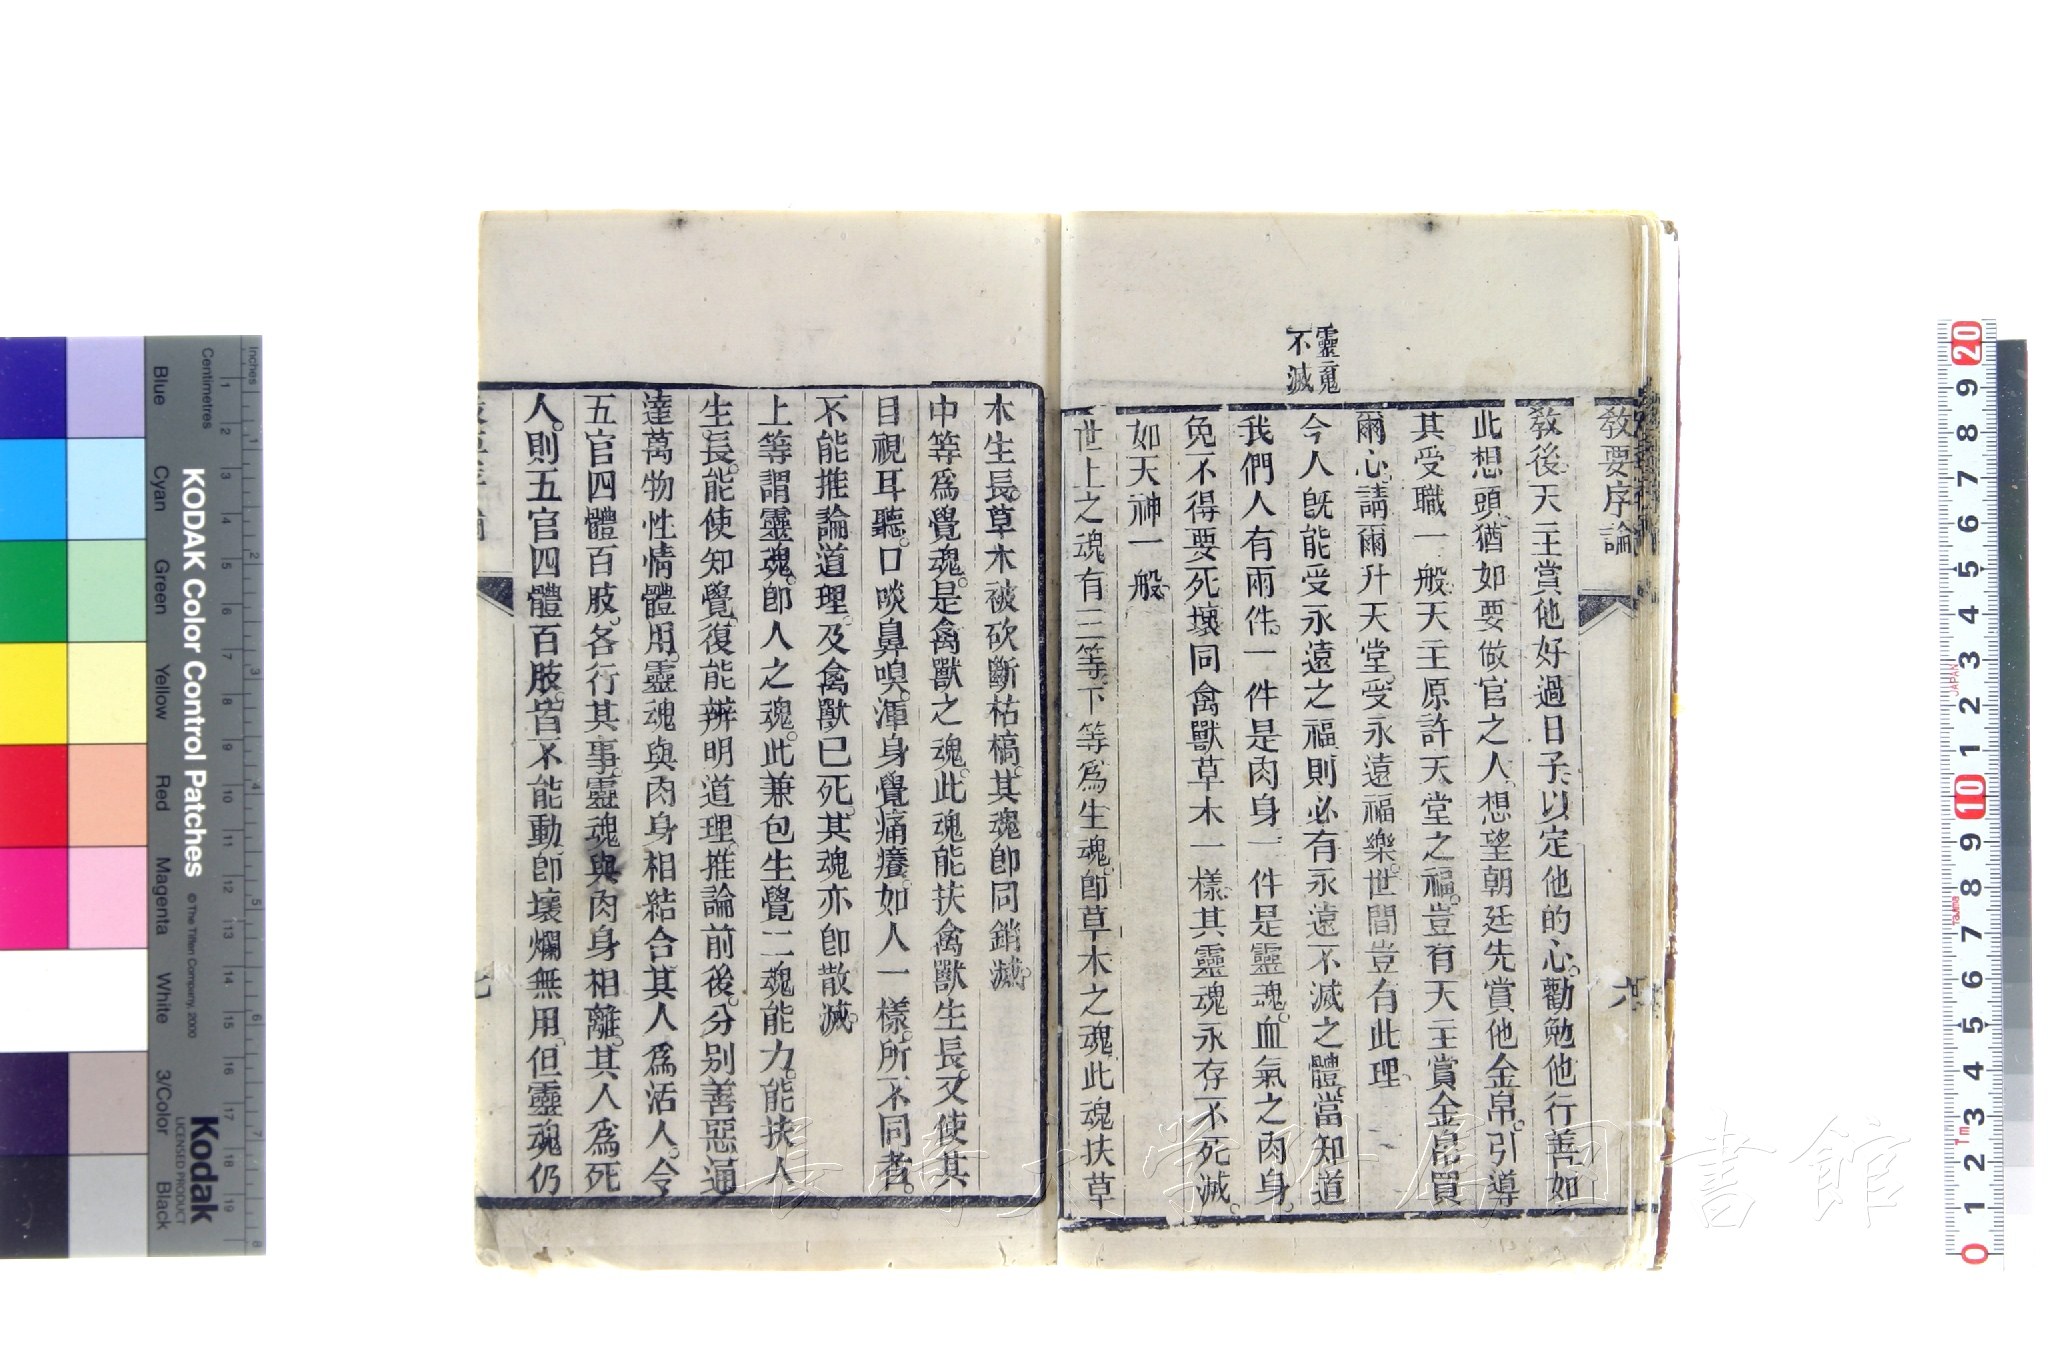 教要序論
六
教後天主賞他好過日子以定他的心。勸勉他行善如
此想頭。猶如要做官之人。想望朝廷先賞他金帛。引導
其受職一般。天主原許天堂之福。豈有天主賞金帛買
爾心。請爾升天堂。受永遠福樂。世間豈有此理。
靈魂
不滅
今人旣能受永遠之福。則必有永遠不滅之體。當知道
我們人有兩件。一件是肉身。一件是靈魂。血氣之肉身。
免不得要死壞。同禽獸草木一樣。其靈魂永存不死滅。
如天神一般。
世上之魂有三等。下等爲生魂。卽草木之魂。此魂扶草
木生長。草木被砍斷枯槁。其魂卽同銷滅。
中等爲覺魂。是禽獸之魂。此魂能扶禽獸生長。又使其
目視耳聽。口啖鼻嗅。渾身覺痛癢。如人一樣。所不同者。
不能推論道理。及禽獸已死。其魂亦卽散滅。
上等謂靈魂。卽人之魂。此兼包生覺二魂能力。能扶人
生長。能使知覺。復能辨明道理。推論前後。分別善惡。通
達萬物性情體用。靈魂與肉身相結合。其人爲活人。令
五官四體百肢。各行其事。靈魂與肉身相離。其人爲死
人。則五官四體百肢。皆不能動。卽壞爛無用。但靈魂仍
七
長崎大学附属図書館
KODAK Color Control Patches
© The Tiffen Company, 2000
Kodak
LICENSED PRODUCT
Inches
Centimetres
Blue
Cyan
Green
Yellow
Red
Magenta
White
3/Color
Black
JAPAN